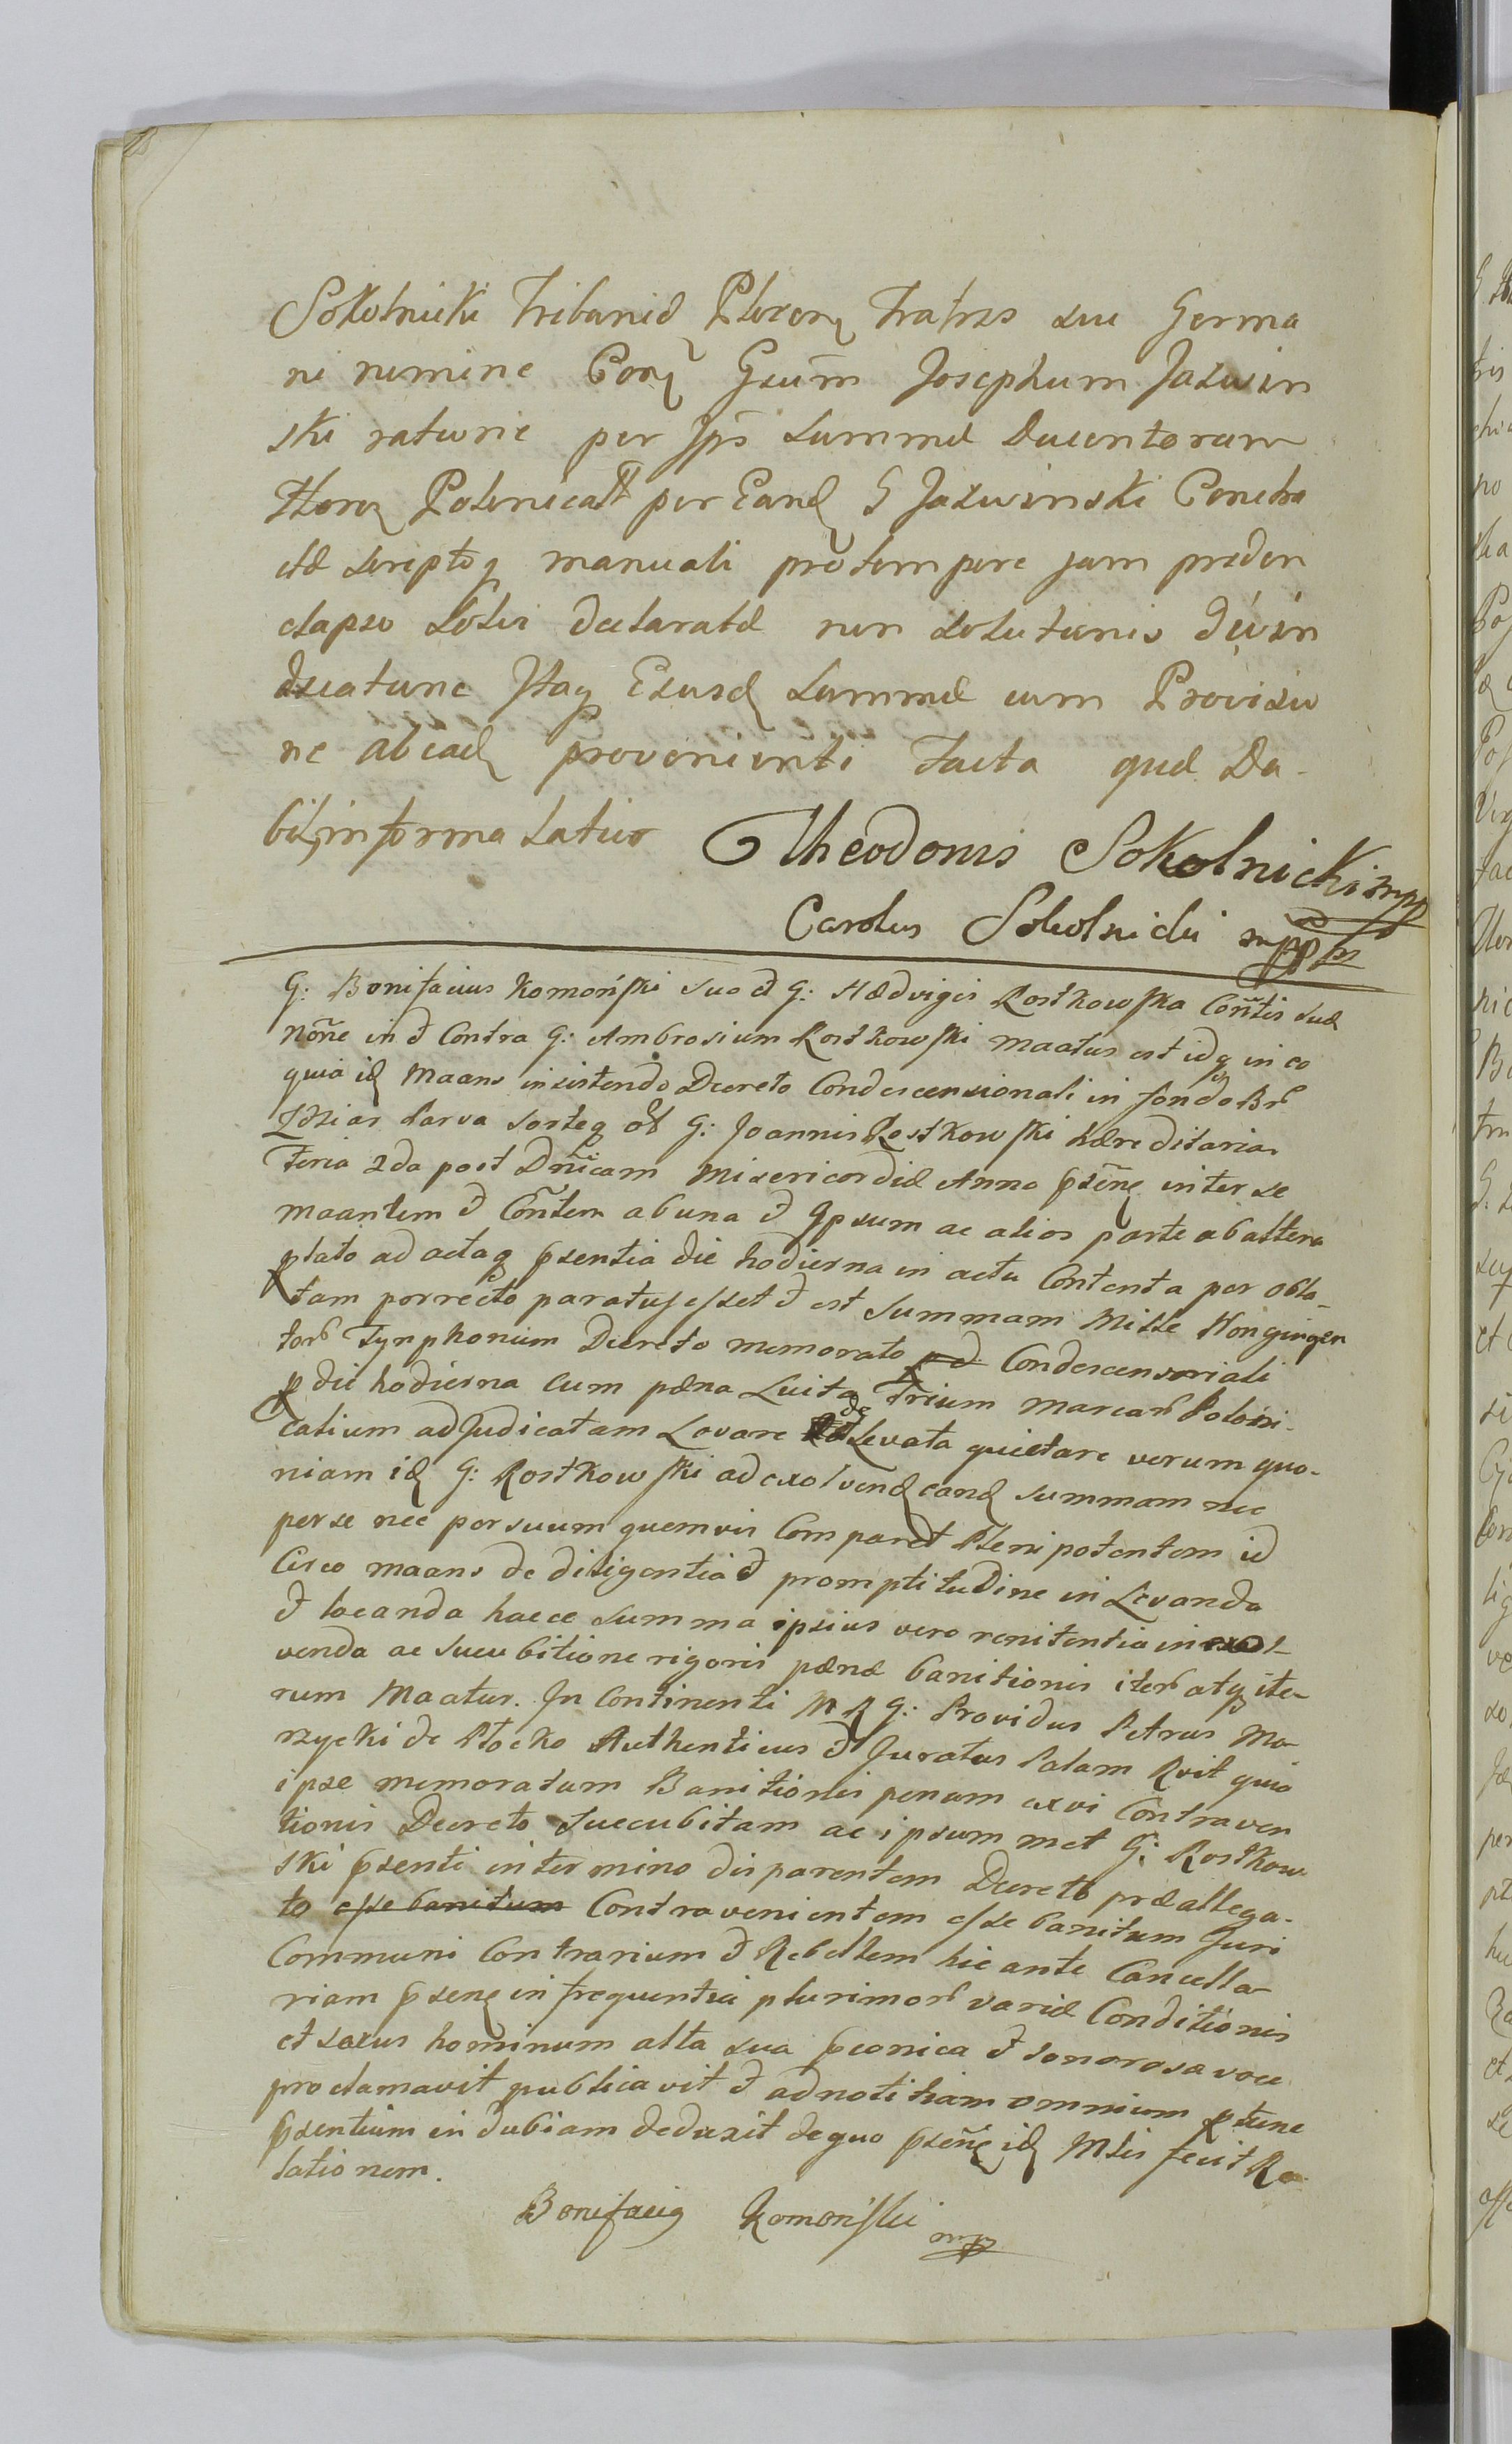 Sokolnicki Tribunid Plocens Fratris sui Germa
ni nomine Cong Gsum Josephum Jazwin
ski ratione per Jps Summæ Ducentorum
Floroz Polonicaλ per Eand G Jazwinski Contra
ctæ scriptoq manuali pro tempore jam priden
elapso Solvi declaratæ non solutionis divin
dicatione Itaq Eiusd Summæ cum Provisio
ne abead provenienti facta quæ Da-
bit, in forma latiori Theodorus Sokolnicki mpp
Carolus Sokolnicki mpp
G: Bonifacius Komoński suo et G: Hædvigis Rostkowska Conntis suæ
noñe in et Contra G: Ambrosium Rostkowski maatus est idq in eo
quia id Maans insistendo Decreto Condescensionali in fondo Bnr
Zdziar Parva sorteq G: Joannis Rostkowski hæreditaria
Feria 2da post Dñicam Misericordiæ Anno psenq inter se
maantem et Coñtem ab una et Ipsum ac alios parte ab altera
plato ad actaq psentia die hodierna in actu Contenta per obla-
tam porrecto paratus esset et est summam Mille Nongingen
tor Tynphonum Decreto memorato Condescensoriali
p die hodierna cum pæna Luitq Trium marcar Poloni-
calium adjudicatam Lovare de Levata quietare verum quo-
niam id G: Rostkowski ad exolvend eand summam nec
per se nec per suum quemvis Comparet Plenipotentem id
Circo maans de diligentia et promptitudine in Levanda
et locanda haece summa ipsius vero renitentia in exol-
venda ac sucubitione rigoris pænæ banitionis iter atq ite-
rum Maatur. In Continenti M R G: Providus Petrus Ma-
rzycki de Płocko Authenticus et Juratus Palam Rvit quia
ipse memoratum Banitionis penam ex vi Contraven
tionis Decreto succubitam ac ipsummet G: Rostkow-
ski psenti in termino disparentem Decreto præallega-
to esse banitum Contravenientem esse banitum Juri
Communi Contrarium et Rebellem hic ante Cancella-
riam psenq in frequentia plurimor variæ Conditionis
et sexus hominum alta sua pconica et sonorosa voce
proclamavit publicavit et ad notitiam omnium p tunc
psentium in dubiam deduxit de quo pseñq id Mlis fecit Re-
lationem.
Bonifacig Komoński mp